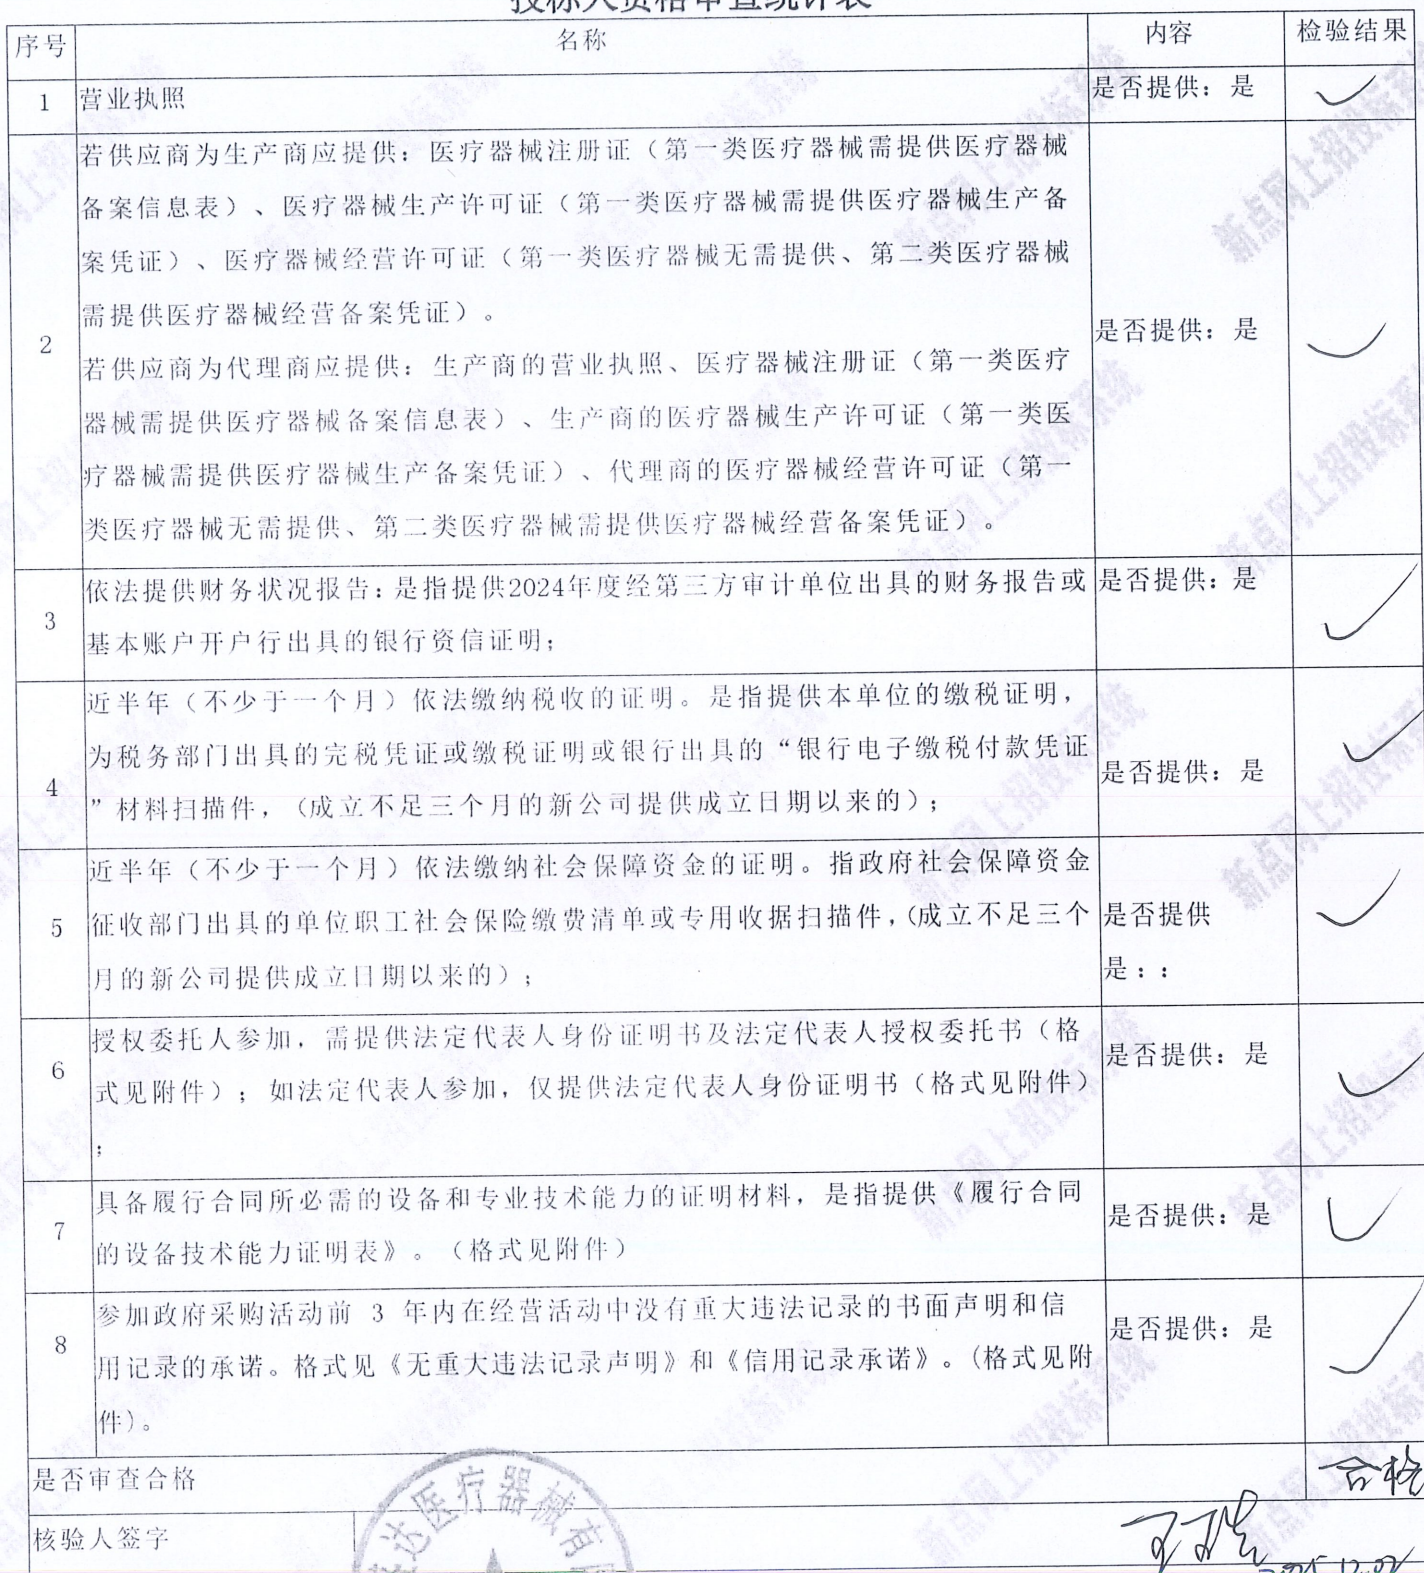 投标人资格审查统计表
序号 名称 内容 检验结果
1 营业执照 是否提供：是
若供应商为生产商应提供：医疗器械注册证（第一类医疗器械需提供医疗器械
备案信息表）、医疗器械生产许可证（第一类医疗器械需提供医疗器械生产备
案凭证）、医疗器械经营许可证（第一类医疗器械无需提供、第二类医疗器械
需提供医疗器械经营备案凭证）。
2 是否提供：是
若供应商为代理商应提供：生产商的营业执照、医疗器械注册证（第一类医疗
器械需提供医疗器械备案信息表）、生产商的医疗器械生产许可证（第一类医
疗器械需提供医疗器械生产备案凭证）、代理商的医疗器械经营许可证（第一
类医疗器械无需提供、第二类医疗器械需提供医疗器械经营备案凭证）。
依法提供财务状况报告：是指提供2024年度经第三方审计单位出具的财务报告或 是否提供：是
3
基本账户开户行出具的银行资信证明；
近半年（不少于一个月）依法缴纳税收的证明。是指提供本单位的缴税证明，
为税务部门出具的完税凭证或缴税证明或银行出具的“银行电子缴税付款凭证
4 是否提供：是
”材料扫描件，（成立不足三个月的新公司提供成立日期以来的）；
近半年（不少于一个月）依法缴纳社会保障资金的证明。指政府社会保障资金
5 征收部门出具的单位职工社会保险缴费清单或专用收据扫描件，（成立不足三个 是否提供
月的新公司提供成立日期以来的）； 是：：
授权委托人参加，需提供法定代表人身份证明书及法定代表人授权委托书（格
6 是否提供：是
式见附件）；如法定代表人参加，仅提供法定代表人身份证明书（格式见附件）
；
具备履行合同所必需的设备和专业技术能力的证明材料，是指提供《履行合同
7 是否提供：是
的设备技术能力证明表》。（格式见附件）
参加政府采购活动前 3 年内在经营活动中没有重大违法记录的书面声明和信
8 是否提供：是
用记录的承诺。格式见《无重大违法记录声明》和《信用记录承诺》。（格式见附
件）。
是否审查合格 合格
核验人签字
达医疗器械有限
新点网上招投标系统